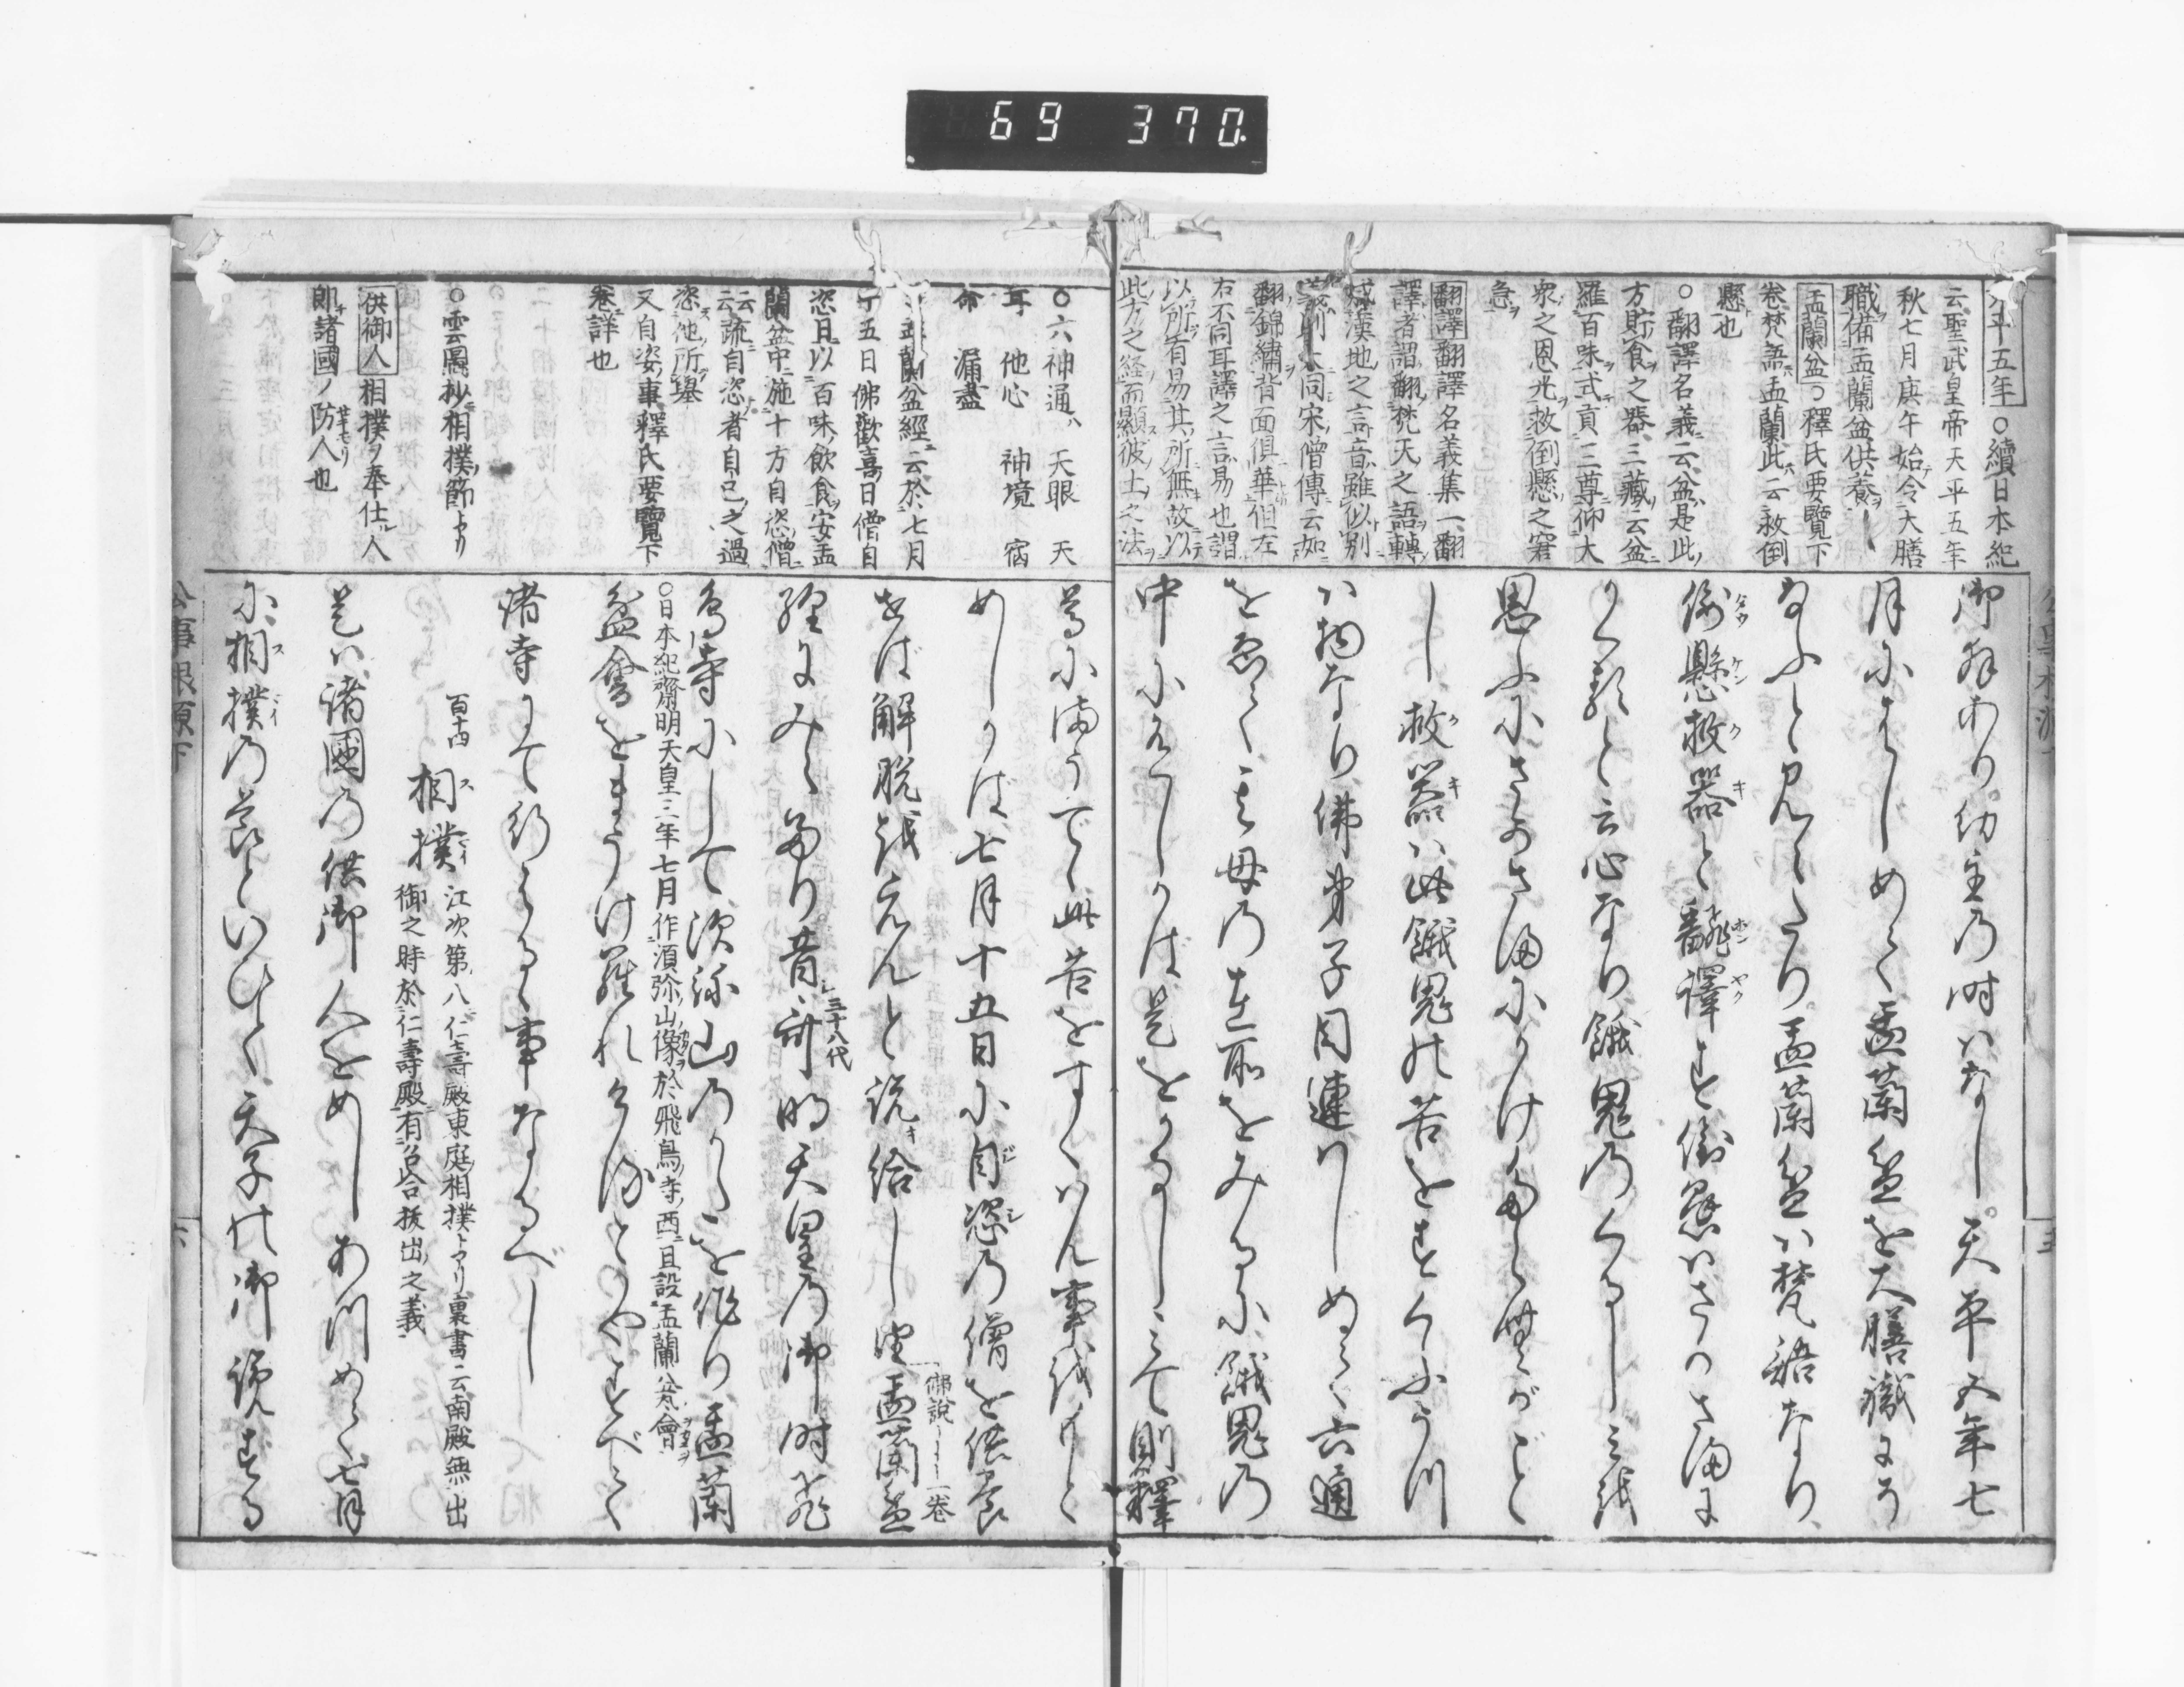 69 370
天平五年○續日本紀
云聖武皇帝天平五年
秋七月庚午始令大膳
職備盂蘭盆供養
盂蘭盆○釋氏要覽下
卷梵語盂蘭此ニハ云救倒
懸也
○翻譯名義云盆ハ是此
方貯食之器三藏云盆
羅百味式貢三尊仰大
衆之恩光救倒懸之窘
急
翻譯 翻譯名義集一翻
譯者謂翻梵天之語轉
成漢地之言音雖似別
義則大同宋僧傳云如
翻錦繡背面俱華但左
右不同耳譯之言易也謂
以所有易其所無故以
此方之経而顯彼土之法
御拜あり幼主の時ハなし。天平五年七
月にはしめて盂蘭盆を大膳職にそ
なふと見えたり盂蘭盆ハ梵語なり
倒懸救器と翻譯す倒懸ハさかさまに
かくると云心なり餓鬼のくるしミ
思ふにさかさまにかけたらむがごと
し救器ハ此餓鬼の苦をすくふうつ
ハ物なり佛弟子目連はしめて六通
をえて母の在所をみるに餓鬼の
中にありしかば是をかなしミて則釋
○六神通ハ 天眼 天
耳 他心 神境 宿
命 漏盡
盂蘭盆經云於七月
十五日佛歡喜日僧自
恣且以百味飲食安盂
蘭盆中施十方自恣僧
云疏自恣者自己之過
恣他所舉
又自恣事釋氏要覽下
卷詳也
○雲圖抄相撲節ヨリ
供御人 相撲ヲ奉仕ル人
即諸國ノ防人也
尊にまうてゝ此苦をすくハん事をもと
めしかば七月十五日に自恣の僧を供養
せば解脱をえんと説給し佛説一卷盂蘭盆
經にみえたり昔三十八代齊明天皇の御時飛
鳥寺にして須弥山のかたを作り盂蘭
○日本紀齋明天皇三年七月作須弥山像於飛鳥寺西且設盂蘭盆會
盆會をまうけ
諸寺にて行はるゝ事なるべし
百十四 相撲 江次第八仁壽殿東庭相撲ヨリ裏書云南殿無出
御之時於仁壽殿有召合拔出之義
是ハ諸國の供御人をめしあつめて七月
に相撲の節といひて天子の御覧する
公事根源下 六